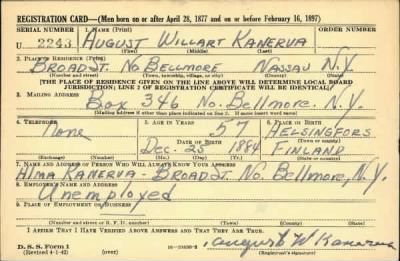 REGISTRATION CARD—(Men born on or after April 28, 1877 and on or before February 16, 1897)
SERIAL NUMBER 1. NAME (Print) ORDER NUMBER
U 2243 AUGUST WILLART KANERVA
(First) (Middle) (Last)
2. PLACE OF RESIDENCE (Print)
BROAD ST. NO. BELLMORE NASSAU N.Y.
(Number and street) (Town, township, village, or city) (County) (State)
[THE PLACE OF RESIDENCE GIVEN ON THE LINE ABOVE WILL DETERMINE LOCAL BOARD
JURISDICTION; LINE 2 OF REGISTRATION CERTIFICATE WILL BE IDENTICAL]
3. MAILING ADDRESS
Box 346 No. Bellmore. N.Y.
[Mailing address if other than place indicated on line 2. If same insert word same]
4. TELEPHONE 5. AGE IN YEARS 6. PLACE OF BIRTH
None 57 HELSINGFORS
DATE OF BIRTH (Town or county)
DEC. 25 1884 FINLAND
(Exchange) (Number) (Mo.) (Day) (Yr.) (State or country)
7. NAME AND ADDRESS OF PERSON WHO WILL ALWAYS KNOW YOUR ADDRESS
ALMA KANERVA - BROAD ST. NO. Bellmore, N.Y.
8. EMPLOYER'S NAME AND ADDRESS
Unemployed
9. PLACE OF EMPLOYMENT OR BUSINESS
(Number and street or R. F. D. number) (Town) (County) (State)
I AFFIRM THAT I HAVE VERIFIED ABOVE ANSWERS AND THAT THEY ARE TRUE.
D. S. S. Form 1
(Revised 4-1-42) (over) August W Kanerva
(Registrant's signature)